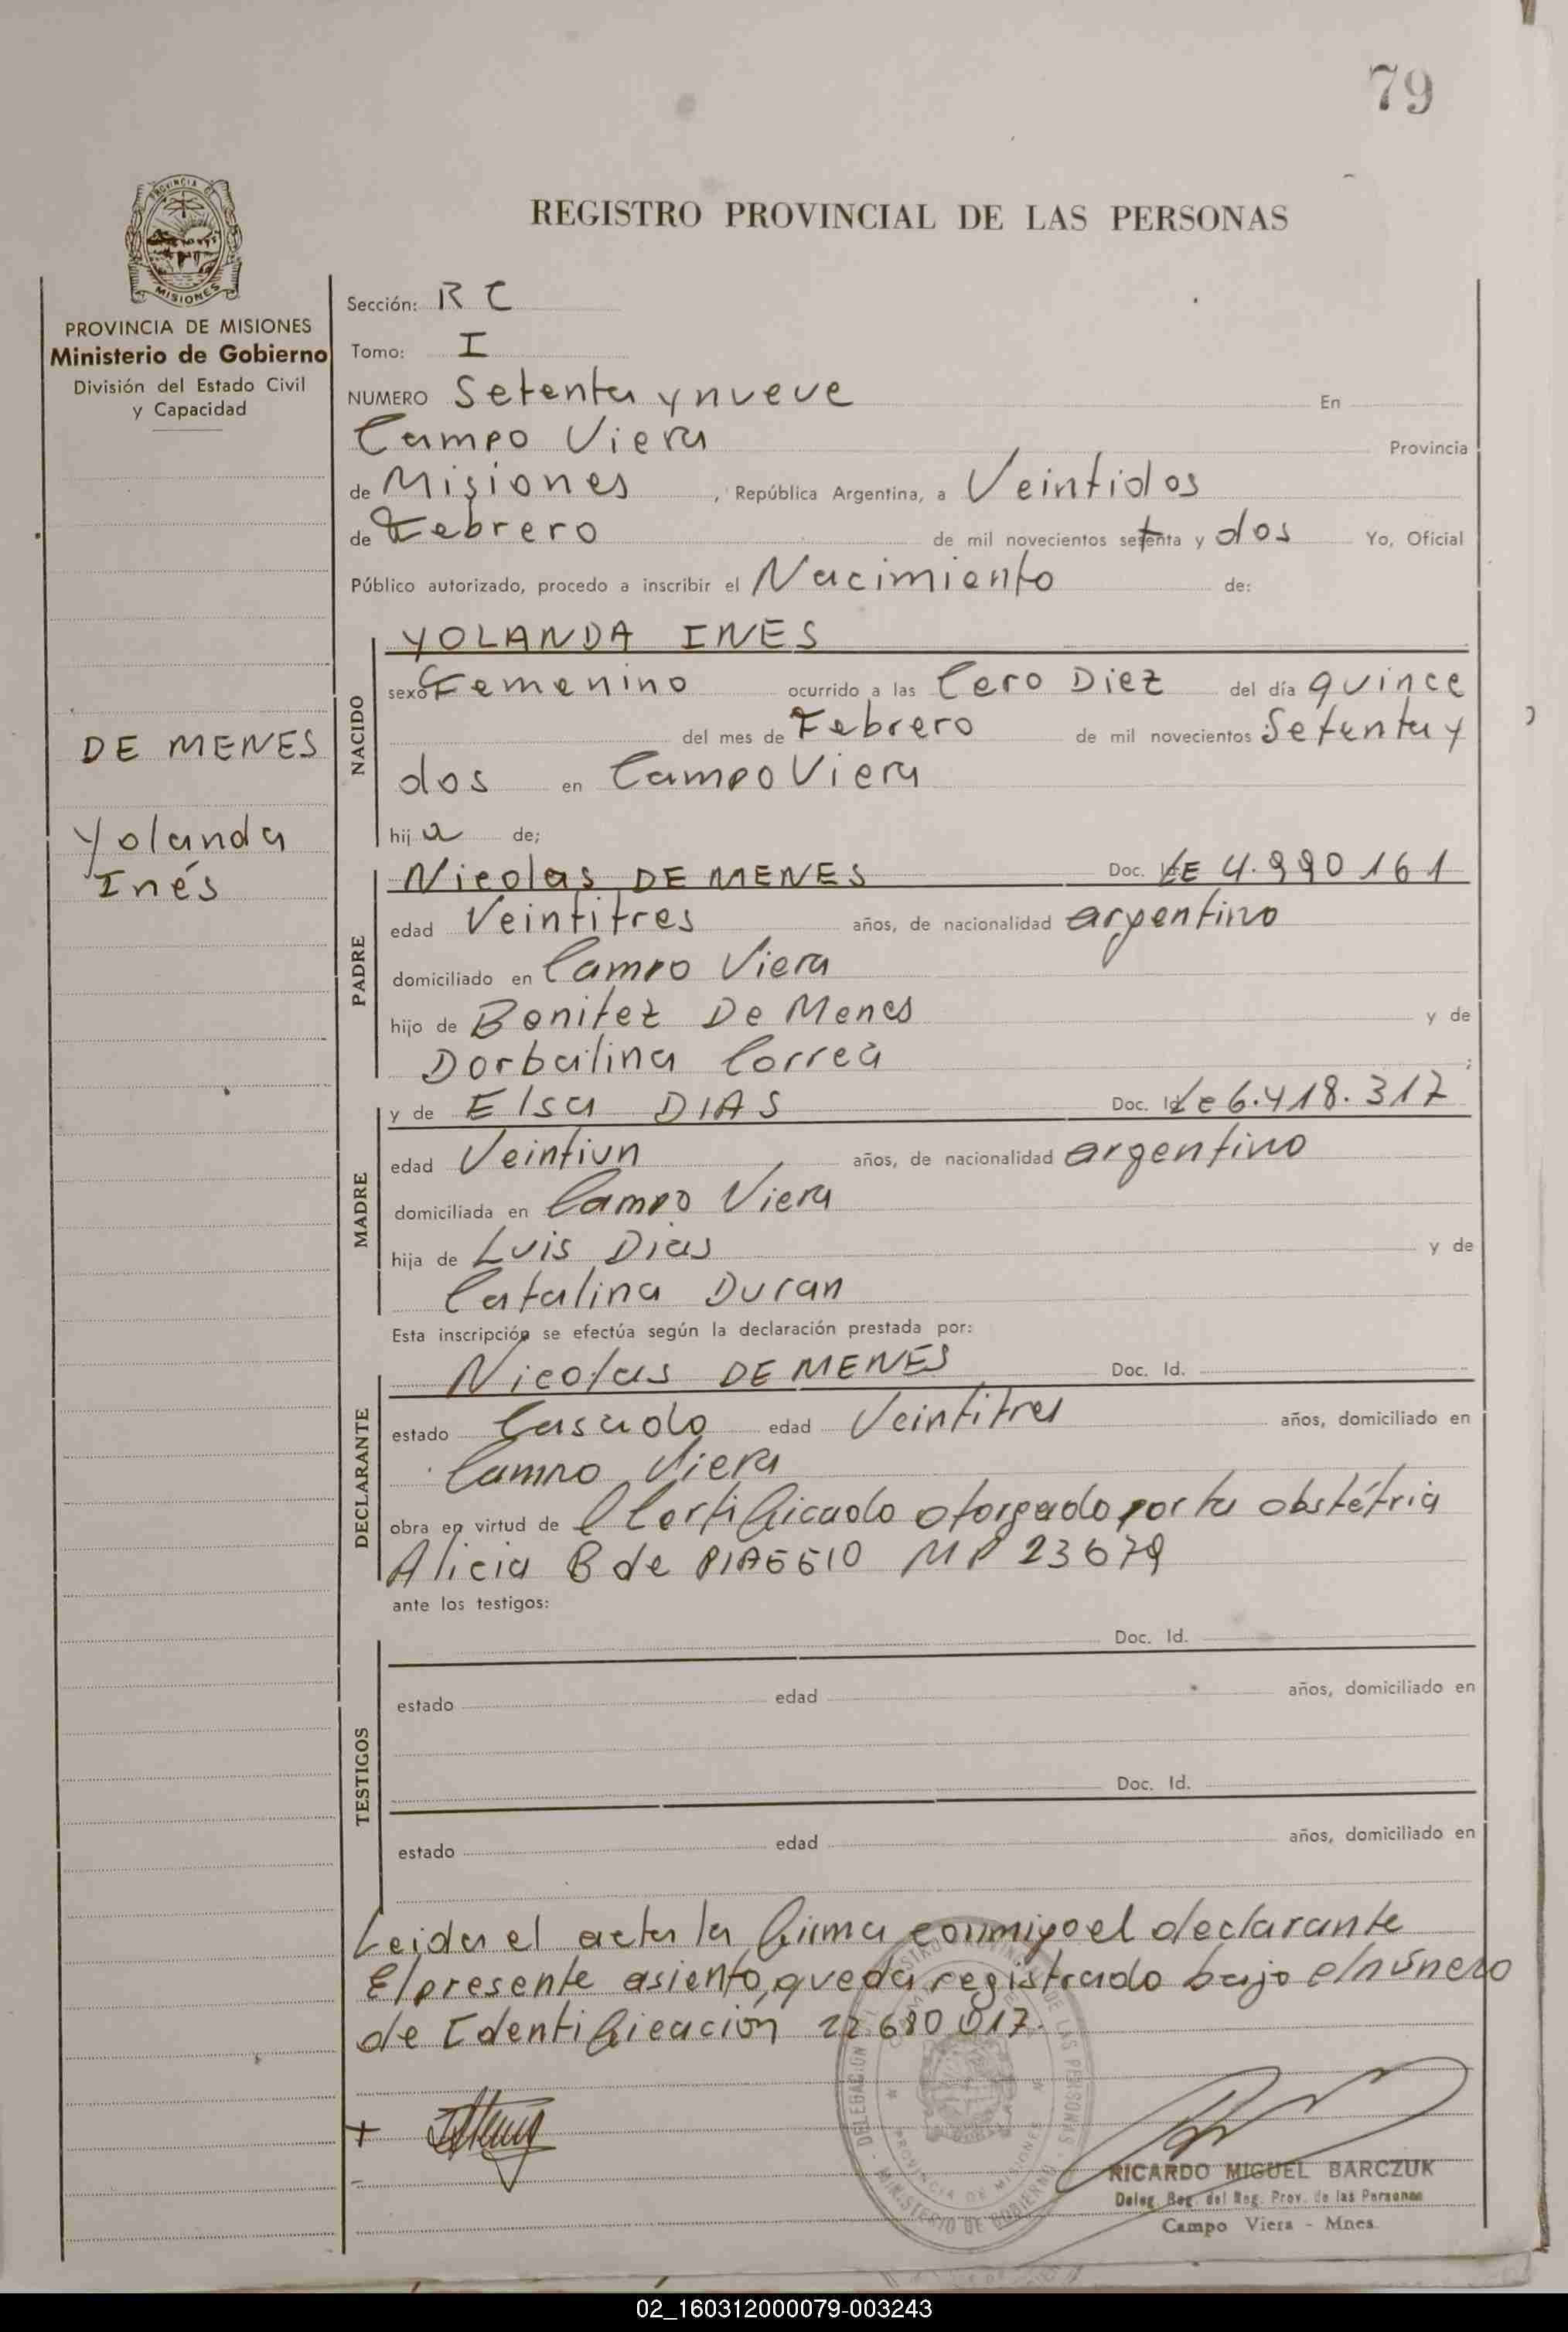 79
REGISTRO PROVINCIAL DE LAS PERSONAS
PROVINCIA DE
MISIONES
PROVINCIA DE MISIONES
Ministerio de Gobierno
División del Estado Civil
y Capacidad
DE MENES
Yolanda
Inés
Sección: R C
Tomo: I
NUMERO Setenta y nueve En
Campo Viera Provincia
de Misiones, República Argentina, a Veintidos
de Febrero de mil novecientos setenta y dos Yo, Oficial
Público autorizado, procedo a inscribir el Nacimiento de:
NACIDO
YOLANDA INES
sexo Femenino ocurrido a las Cero Diez del día quince
del mes de Febrero de mil novecientos Setenta y
dos en Campo Viera
hija de;
PADRE
Nicolas DE MENES Doc. LE 4.990161
edad Veintitres años, de nacionalidad argentino
domiciliado en Campo Viera
hijo de Benitez De Menes y de
Dorbalina Correa;
MADRE
y de Elsa DIAS Doc. Id Le 6.418.317
edad Veintiun años, de nacionalidad argentino
domiciliada en Campo Viera
hija de Luis Dias y de
Catalina Duran
Esta inscripción se efectúa según la declaración prestada por:
DECLARANTE
Nicolas DE MENES Doc. Id.
estado Casado edad Veintitres años, domiciliado en
Campo Viera
obra en virtud de Certificado otorgado por la obstétria
Alicia B de MP 23679
ante los testigos:
TESTIGOS
Doc. Id.
estado edad años, domiciliado en
Doc. Id.
estado edad años, domiciliado en
Leida el acta la firma conmigo el declarante
El presente asiento, queda registrado bajo el número
de Identificación 22.680.017.
RICARDO MIGUEL BARCZUK
Deleg. Reg. del Reg. Prov. de las Personas
Campo Viera - Mnes.
02_160312000079-003243